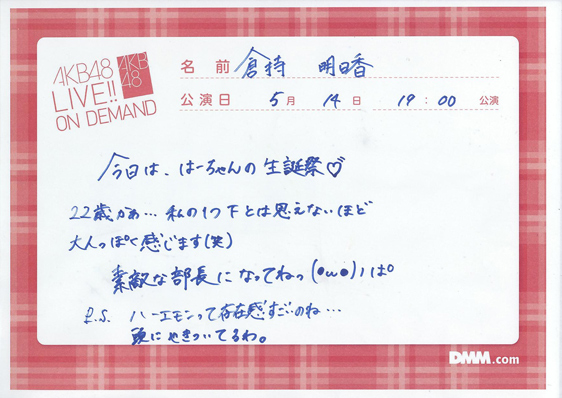 AKB48
LIVE!!
ON DEMAND
AKB
48
名前 倉持 明日香
公演日 5月 14日 19:00 公演
今日は、はーちゃんの生誕祭♡
22歳かぁ…私の1つ下とは思えないほど
大人っぽく感じます(笑)
素敵な部長になってねっ(●ω●)ノぱ。
P.S. ハーエモンって存在感すごいのね…
頭にやきついてるわ。
DMM.com